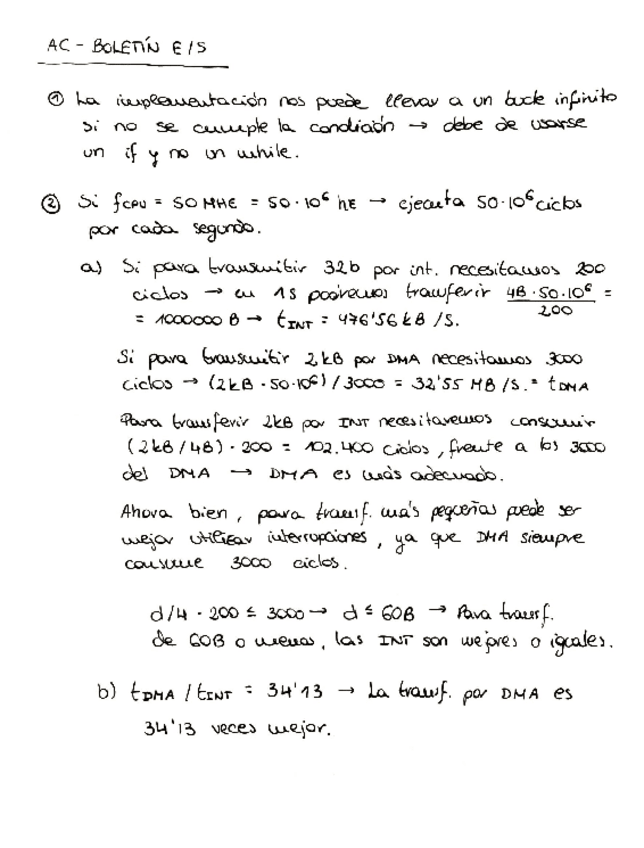 AC - BOLETÍN E/S
① La implementación nos puede llevar a un bucle infinito
si no se cumple la condición → debe de usarse
un if y no un while.
② Si fCPU = 50 MHz = 50·10⁶ hz → ejecuta 50·10⁶ ciclos
por cada segundo.
a) Si para transmitir 32b por int. necesitamos 200
ciclos → en 1s podremos transferir 4B·50·10⁶ / 200 =
= 1000000 B → tINT = 976'56 kB/S.
Si para transmitir 2kB por DMA necesitamos 3000
ciclos → (2kB · 50·10⁶) / 3000 = 32'55 MB/S. = tDMA
Para transferir 2kB por INT necesitaremos consumir
(2kB / 4B) · 200 = 102.400 ciclos, frente a los 3000
del DMA → DMA es más adecuado.
Ahora bien, para transf. más pequeñas puede ser
mejor utilizar interrupciones, ya que DMA siempre
consume 3000 ciclos.
d/4 · 200 ≤ 3000 → d ≤ 60B → Para transf.
de 60B o menos, las INT son mejores o iguales.
b) tDMA / tINT = 34'13 → La transf. por DMA es
34'13 veces mejor.